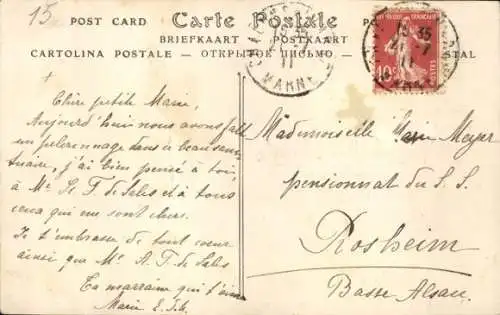 15
POST CARD Carte Postale
BRIEFKAART POSTKAART
CARTOLINA POSTALE — ОТКРЫТОЕ ПИСЬМО —
MARNE
11
FRANÇAISE
10
POSTES
Chère petite Marie,
Aujourd'hui nous avons fait
un pélerinage dans ce beau sanc-
tuaire, j'ai bien pensé à toi,
à Mr de Salis et à tous
ceux qui me sont chers.
Je t'embrasse de tout coeur
ainsi que Mr A. F. de Salis
Ta marraine qui t'aime
Marie
Mademoiselle Marie Meyer
pensionnat du S. S.
Rosheim
Basse Alsace